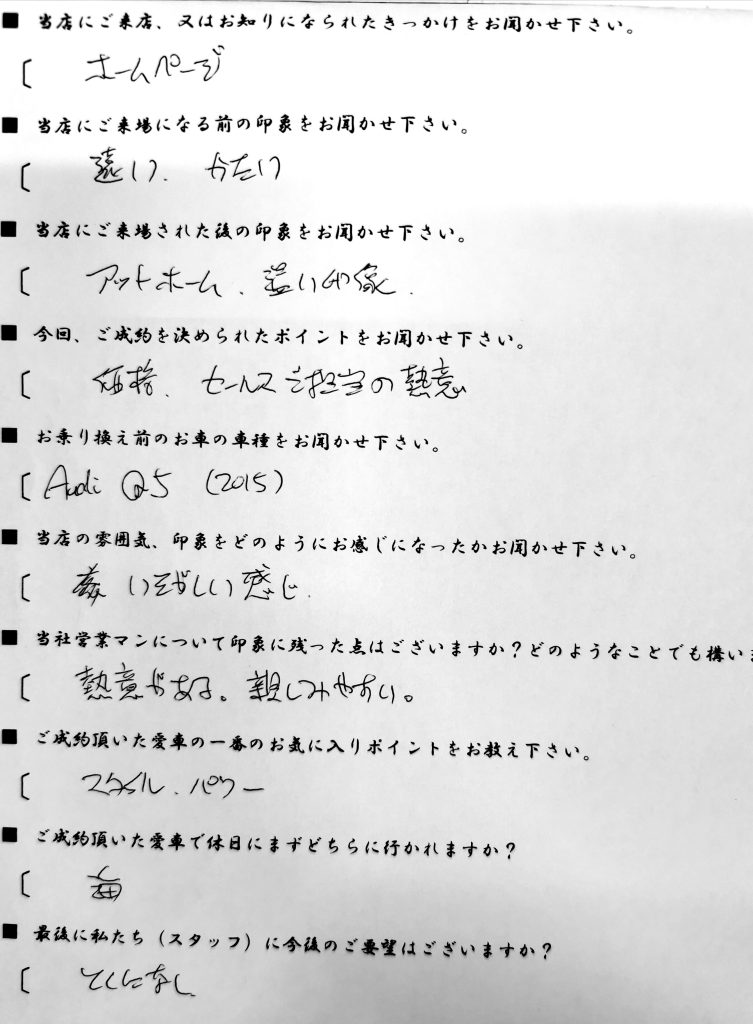 ■ 当店にご来店、又はお知りになられたきっかけをお聞かせ下さい。
〔 ホームページ
■ 当店にご来場になる前の印象をお聞かせ下さい。
〔 遠い、かたい
■ 当店にご来場された後の印象をお聞かせ下さい。
〔 アットホーム、 い印象.
■ 今回、ご成約を決められたポイントをお聞かせ下さい。
〔 価格、セールスご担当の熱意
■ お乗り換え前のお車の車種をお聞かせ下さい。
〔 Audi Q5 (2015)
■ 当店の雰囲気、印象をどのようにお感じになったかお聞かせ下さい。
〔 いそがしい感じ.
■ 当社営業マンについて印象に残った点はございますか?どのようなことでも構いま
〔 熱意がある。親しみやすい。
■ ご成約頂いた愛車の一番のお気に入りポイントをお教え下さい。
〔 スタイル.パワー
■ ご成約頂いた愛車で休日にまずどちらに行かれますか?
〔 海
■ 最後に私たち(スタッフ)に今後のご要望はございますか?
〔 とくになし